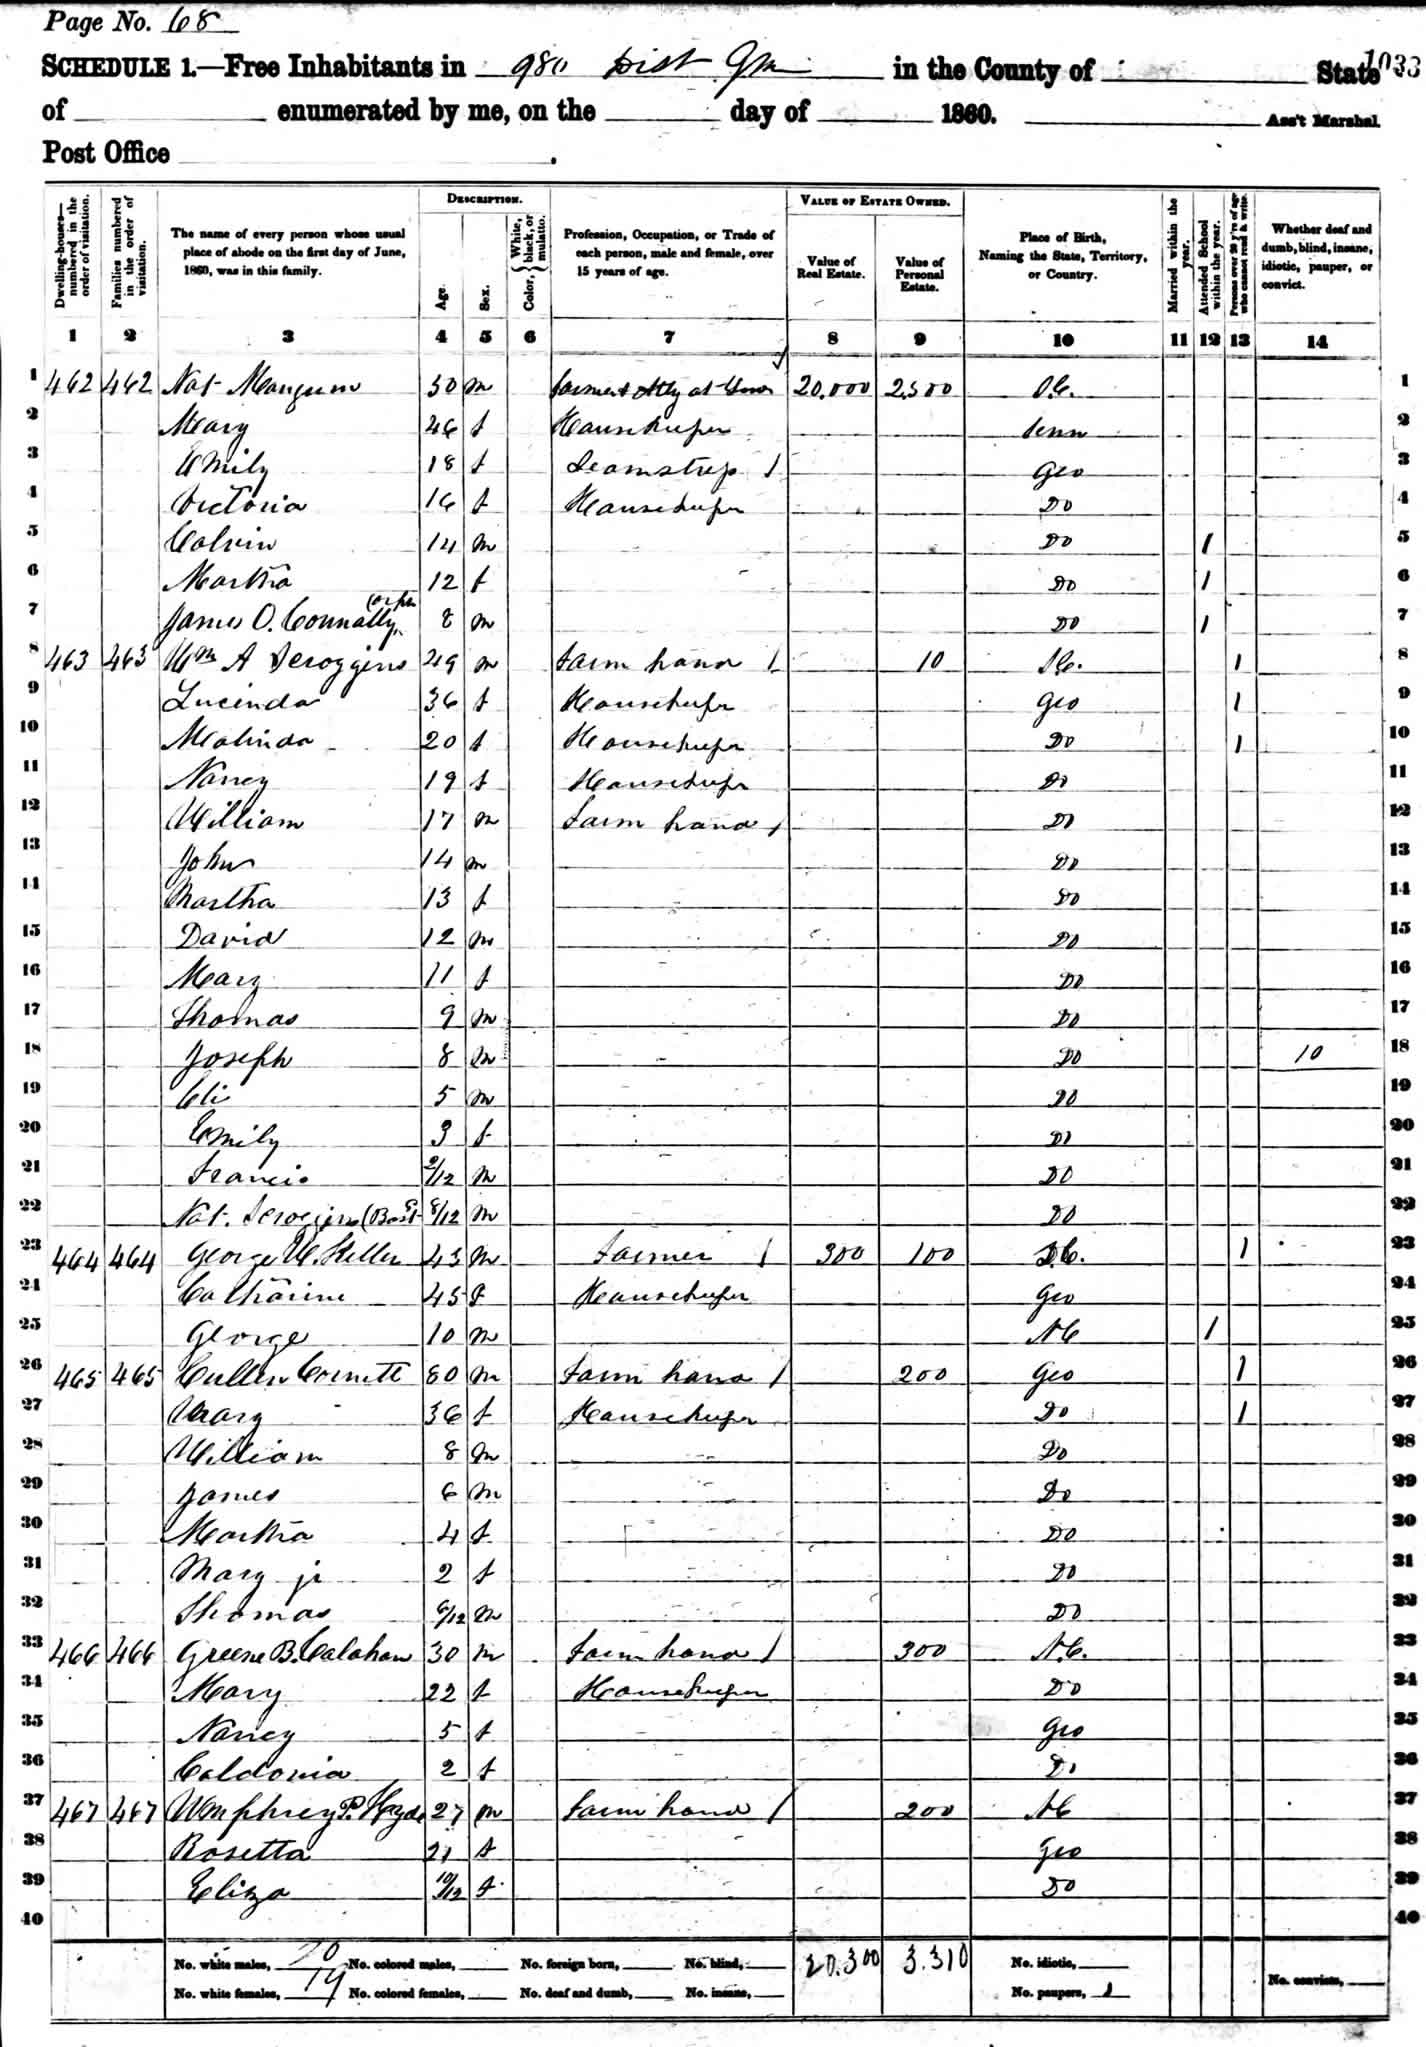 Page No. 68
SCHEDULE 1.—Free Inhabitants in 980 Dist GM in the County of State 1033
of enumerated by me, on the day of 1860. Ass't Marshal.
Post Office .
Dwelling-houses—numbered in the order of visitation. Families numbered in the order of visitation. The name of every person whose usual place of abode on the first day of June, 1860, was in this family. DESCRIPTION. Age. Sex. Color, { White, black, or mulatto. Profession, Occupation, or Trade of each person, male and female, over 15 years of age. VALUE OF ESTATE OWNED. Value of Real Estate. Value of Personal Estate. Place of Birth, Naming the State, Territory, or Country. Married within the year. Attended School within the year. Persons over 20 y'rs of age who cannot read & write. Whether deaf and dumb, blind, insane, idiotic, pauper, or convict.
1 2 3 4 5 6 7 8 9 10 11 12 13 14
1 462 462 Nat Mangum 50 m farmer & Atty at 20.000 2500 1
2 Mary 46 f Housekeeper Tenn 2
3 Emily 18 f Seamstress / Geo 3
4 Victoria 16 f Housekeeper Do 4
5 Calvin 14 m Do 1 5
6 Martha 12 f Do 1 6
7 James O. Connally (orph 8 m Do 1 7
8 463 463 Wm A Scroggins 49 m farm hand / 10 1 8
9 Lucinda 36 f Housekeeper Geo 1 9
10 Malinda 20 f Housekeeper Do 1 10
11 Nancy 19 f Housekeeper Do 11
12 William 17 m farm hand / Do 12
13 John 14 m Do 13
14 Martha 13 f Do 14
15 David 12 m Do 15
16 Mary 11 f Do 16
17 Thomas 9 m Do 17
18 Joseph 8 m Do 10 18
19 Eli 5 m Do 19
20 Emily 3 f Do 20
21 Francis 2/12 m Do 21
22 Nat. Scrogins 8/12 m Do 22
23 464 464 George W. Keller 43 m farmer / 300 100 1 23
24 Catharine 45 f Housekeeper Geo 24
25 George 10 m NC 1 25
26 465 465 Cullen Cornett 60 m farm hand / 200 Geo 1 26
27 Mary 36 f Housekeeper Do 1 27
28 William 8 m Do 28
29 James 6 m Do 29
30 Martha 4 f Do 30
31 Mary jr 2 f Do 31
32 Thomas 6/12 m Do 32
33 466 466 Greene B. Calahan 30 m farm hand / 300 N.C. 33
34 Mary 22 f Housekeeper Do 34
35 Nancy 5 f Geo 35
36 Caldonia 2 f Do 36
37 467 467 Umphrey P. Hyde 27 m farm hand / 200 NC 37
38 Rosetta 21 f Geo 38
39 Eliza 10/12 f Do 39
40 40
No. white males, 20 No. colored males, No. foreign born, No. blind, 20.300 3.310 No. idiotic, No. convicts,
No. white females, 19 No. colored females, No. deaf and dumb, No. insane, No. paupers, 1